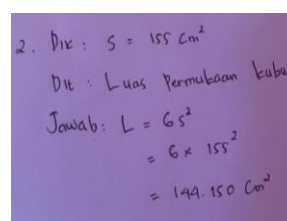 2. Dik : S = 155 cm²
Dit : Luas Permukaan kubu
Jawab : L = 6s²
= 6 x 155²
= 144.150 Cm²